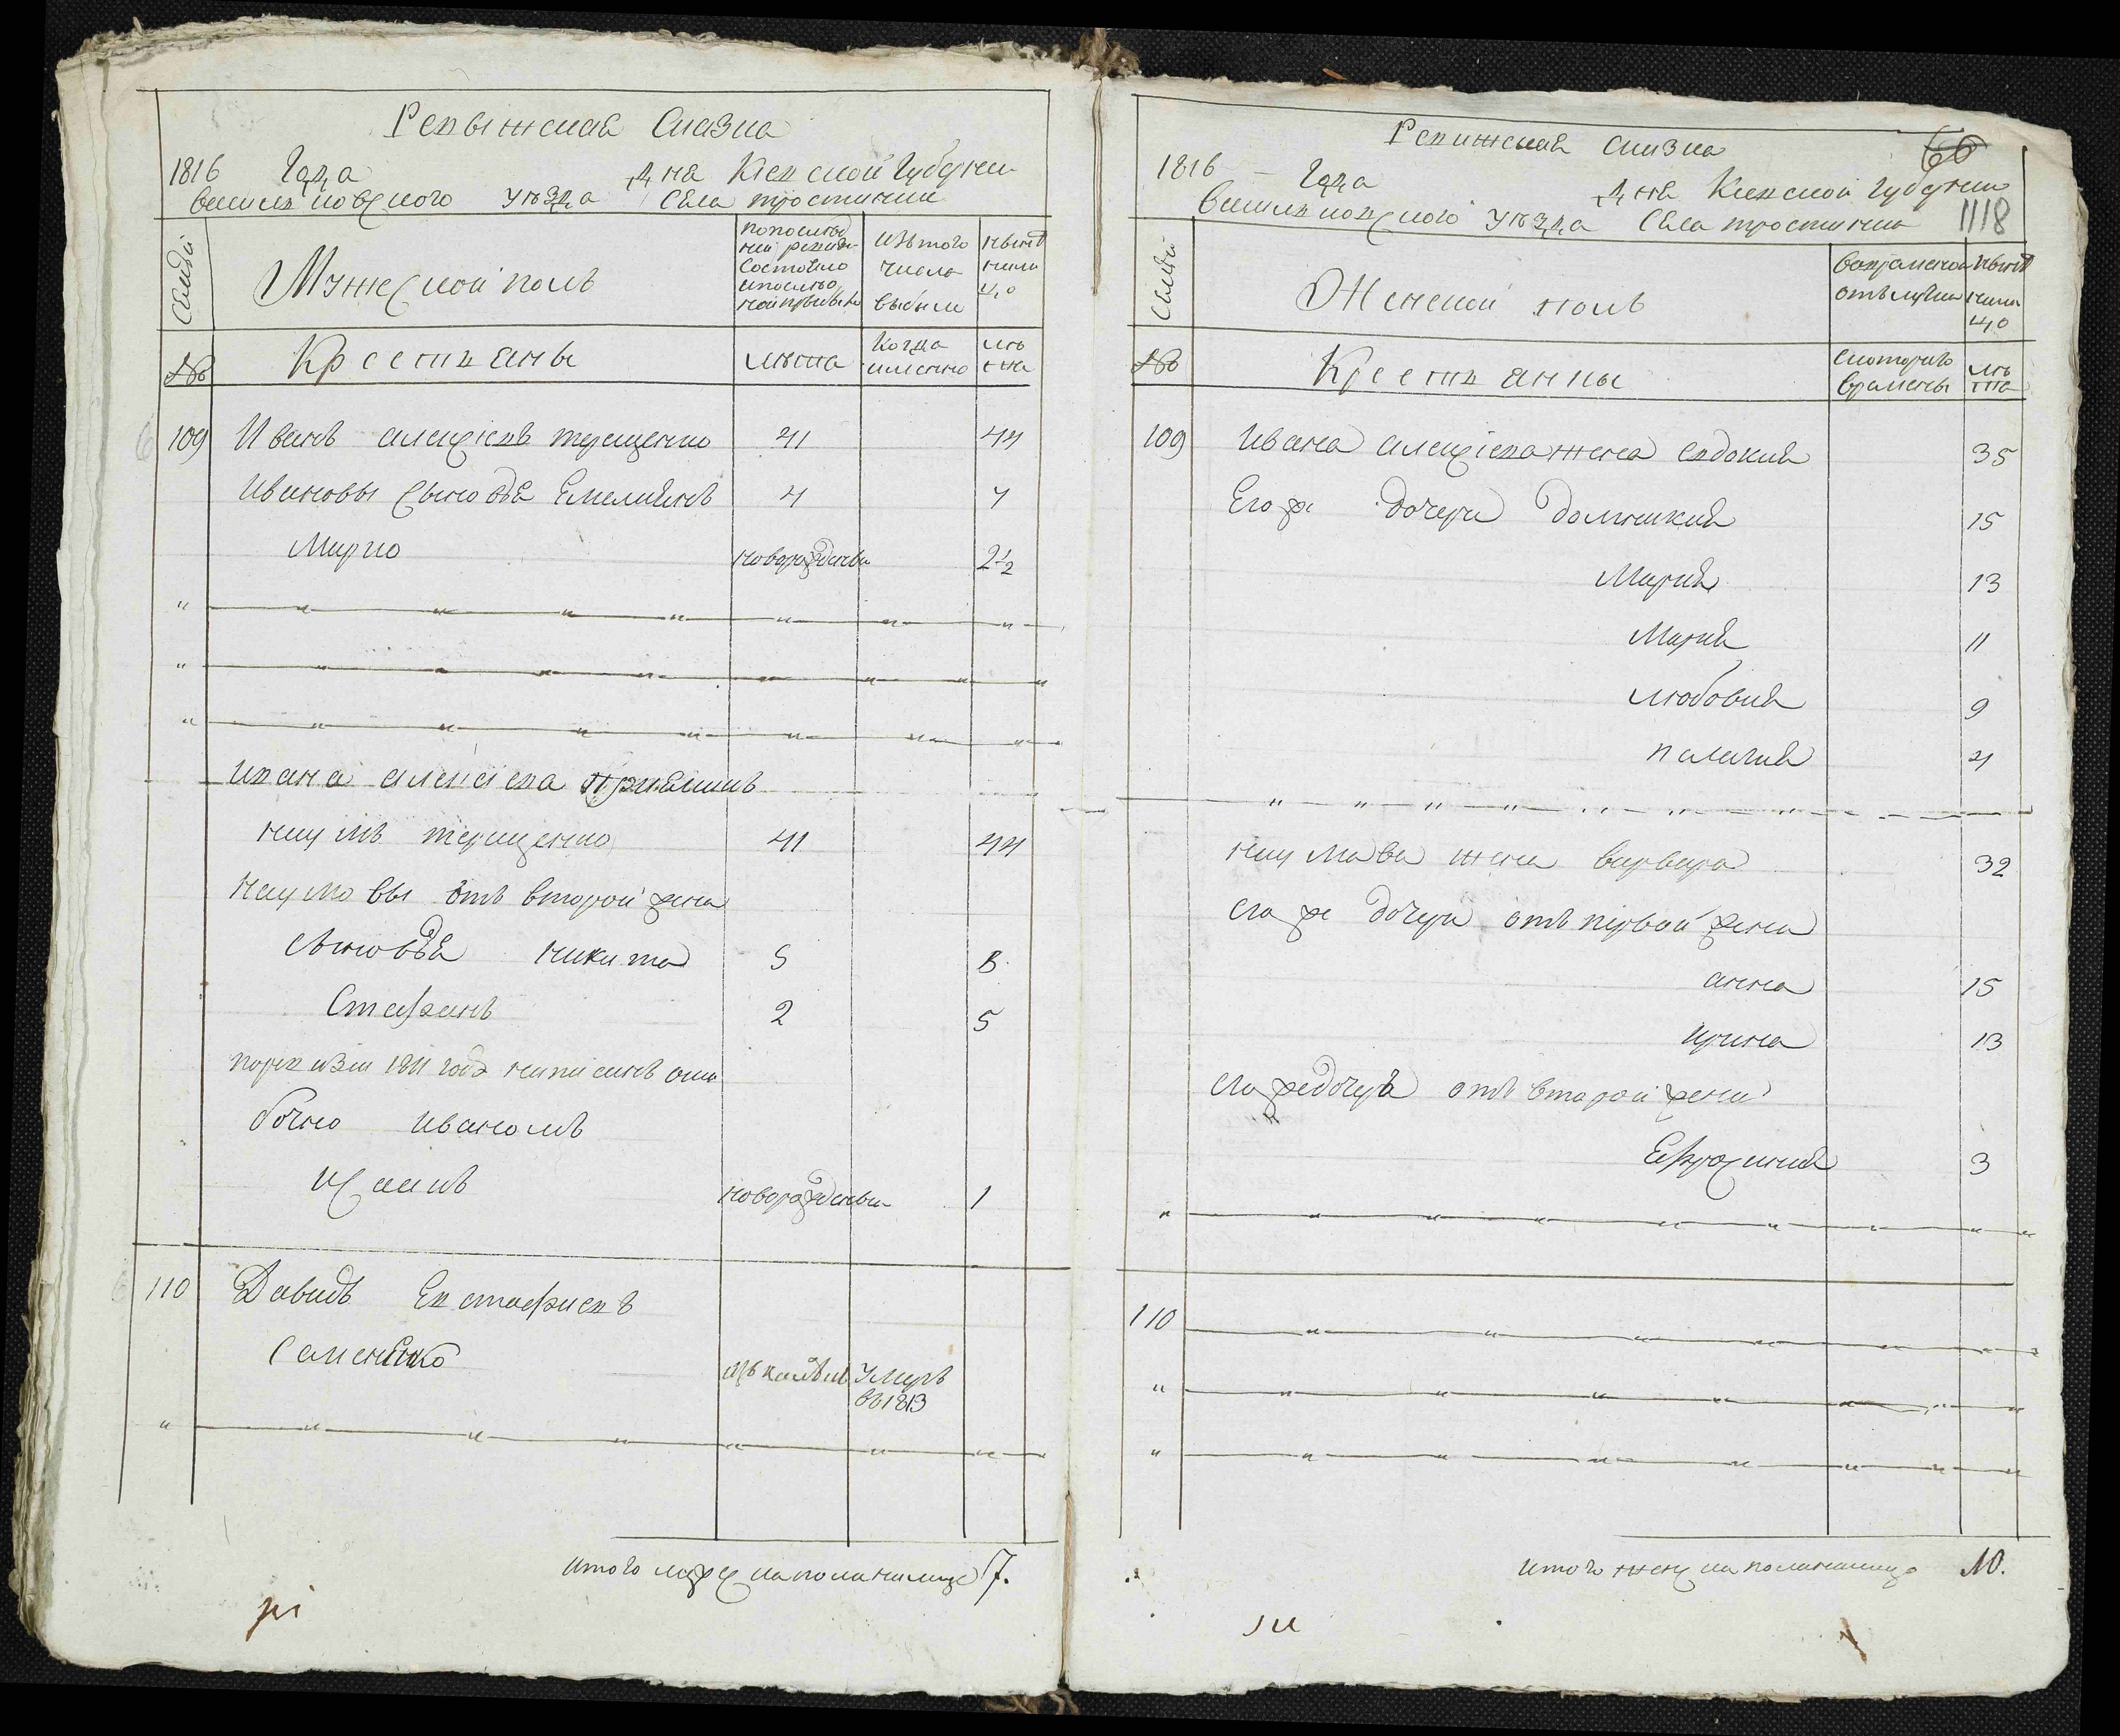 Ревыжская Сказка
1816 Года Дня Киевской Губернии
василковского уезда Села тростинки
Семьи
Мужеской полъ
попослед
ней ревизи
Состояло
ипослъ
изътого
числа
выбыли
нынѣ
нали
цо
№
Крестьяны
лѣта
когда
именно
лѣ
та
109 Иванъ алексіевъ терещенко 41 44
Ивановы сыновья Емелиянъ 4 7
Марко новорожденны 2½
ивана алексіева племянникъ
наумъ терещенко 41 44
Наумовы отъ второй жены
сыновья никита 5 8
Стефанъ 2 5
поревизіи 1811 года написанъ оши
бочно иваномъ
Исаакъ новорожденны 1
110 Давидъ Евстафиевъ
Семененко умеръ
въ1813
итого мужеска пола налице 7.
Ревижская сказка
60
1816 Года Дня Киевской Губернии
василковского уезда Села тростинки 1118
Семьи
Женской полъ
вовременой
отълучки
нынѣ
нали
цо
№
Крестьянкы
скоторого
времены
лѣ
та
109 Ивана алексіева жена евдокия 35
Его же дочери домникия 15
Мария 13
Мария 11
любовия 9
палагия 4
наумава жена варвара 32
его же дочери отъ первой жены
анна 15
ирина 13
его же дочеръ отъ второй жены
Ефросиния 3
110
итого женска пола налицо 10.